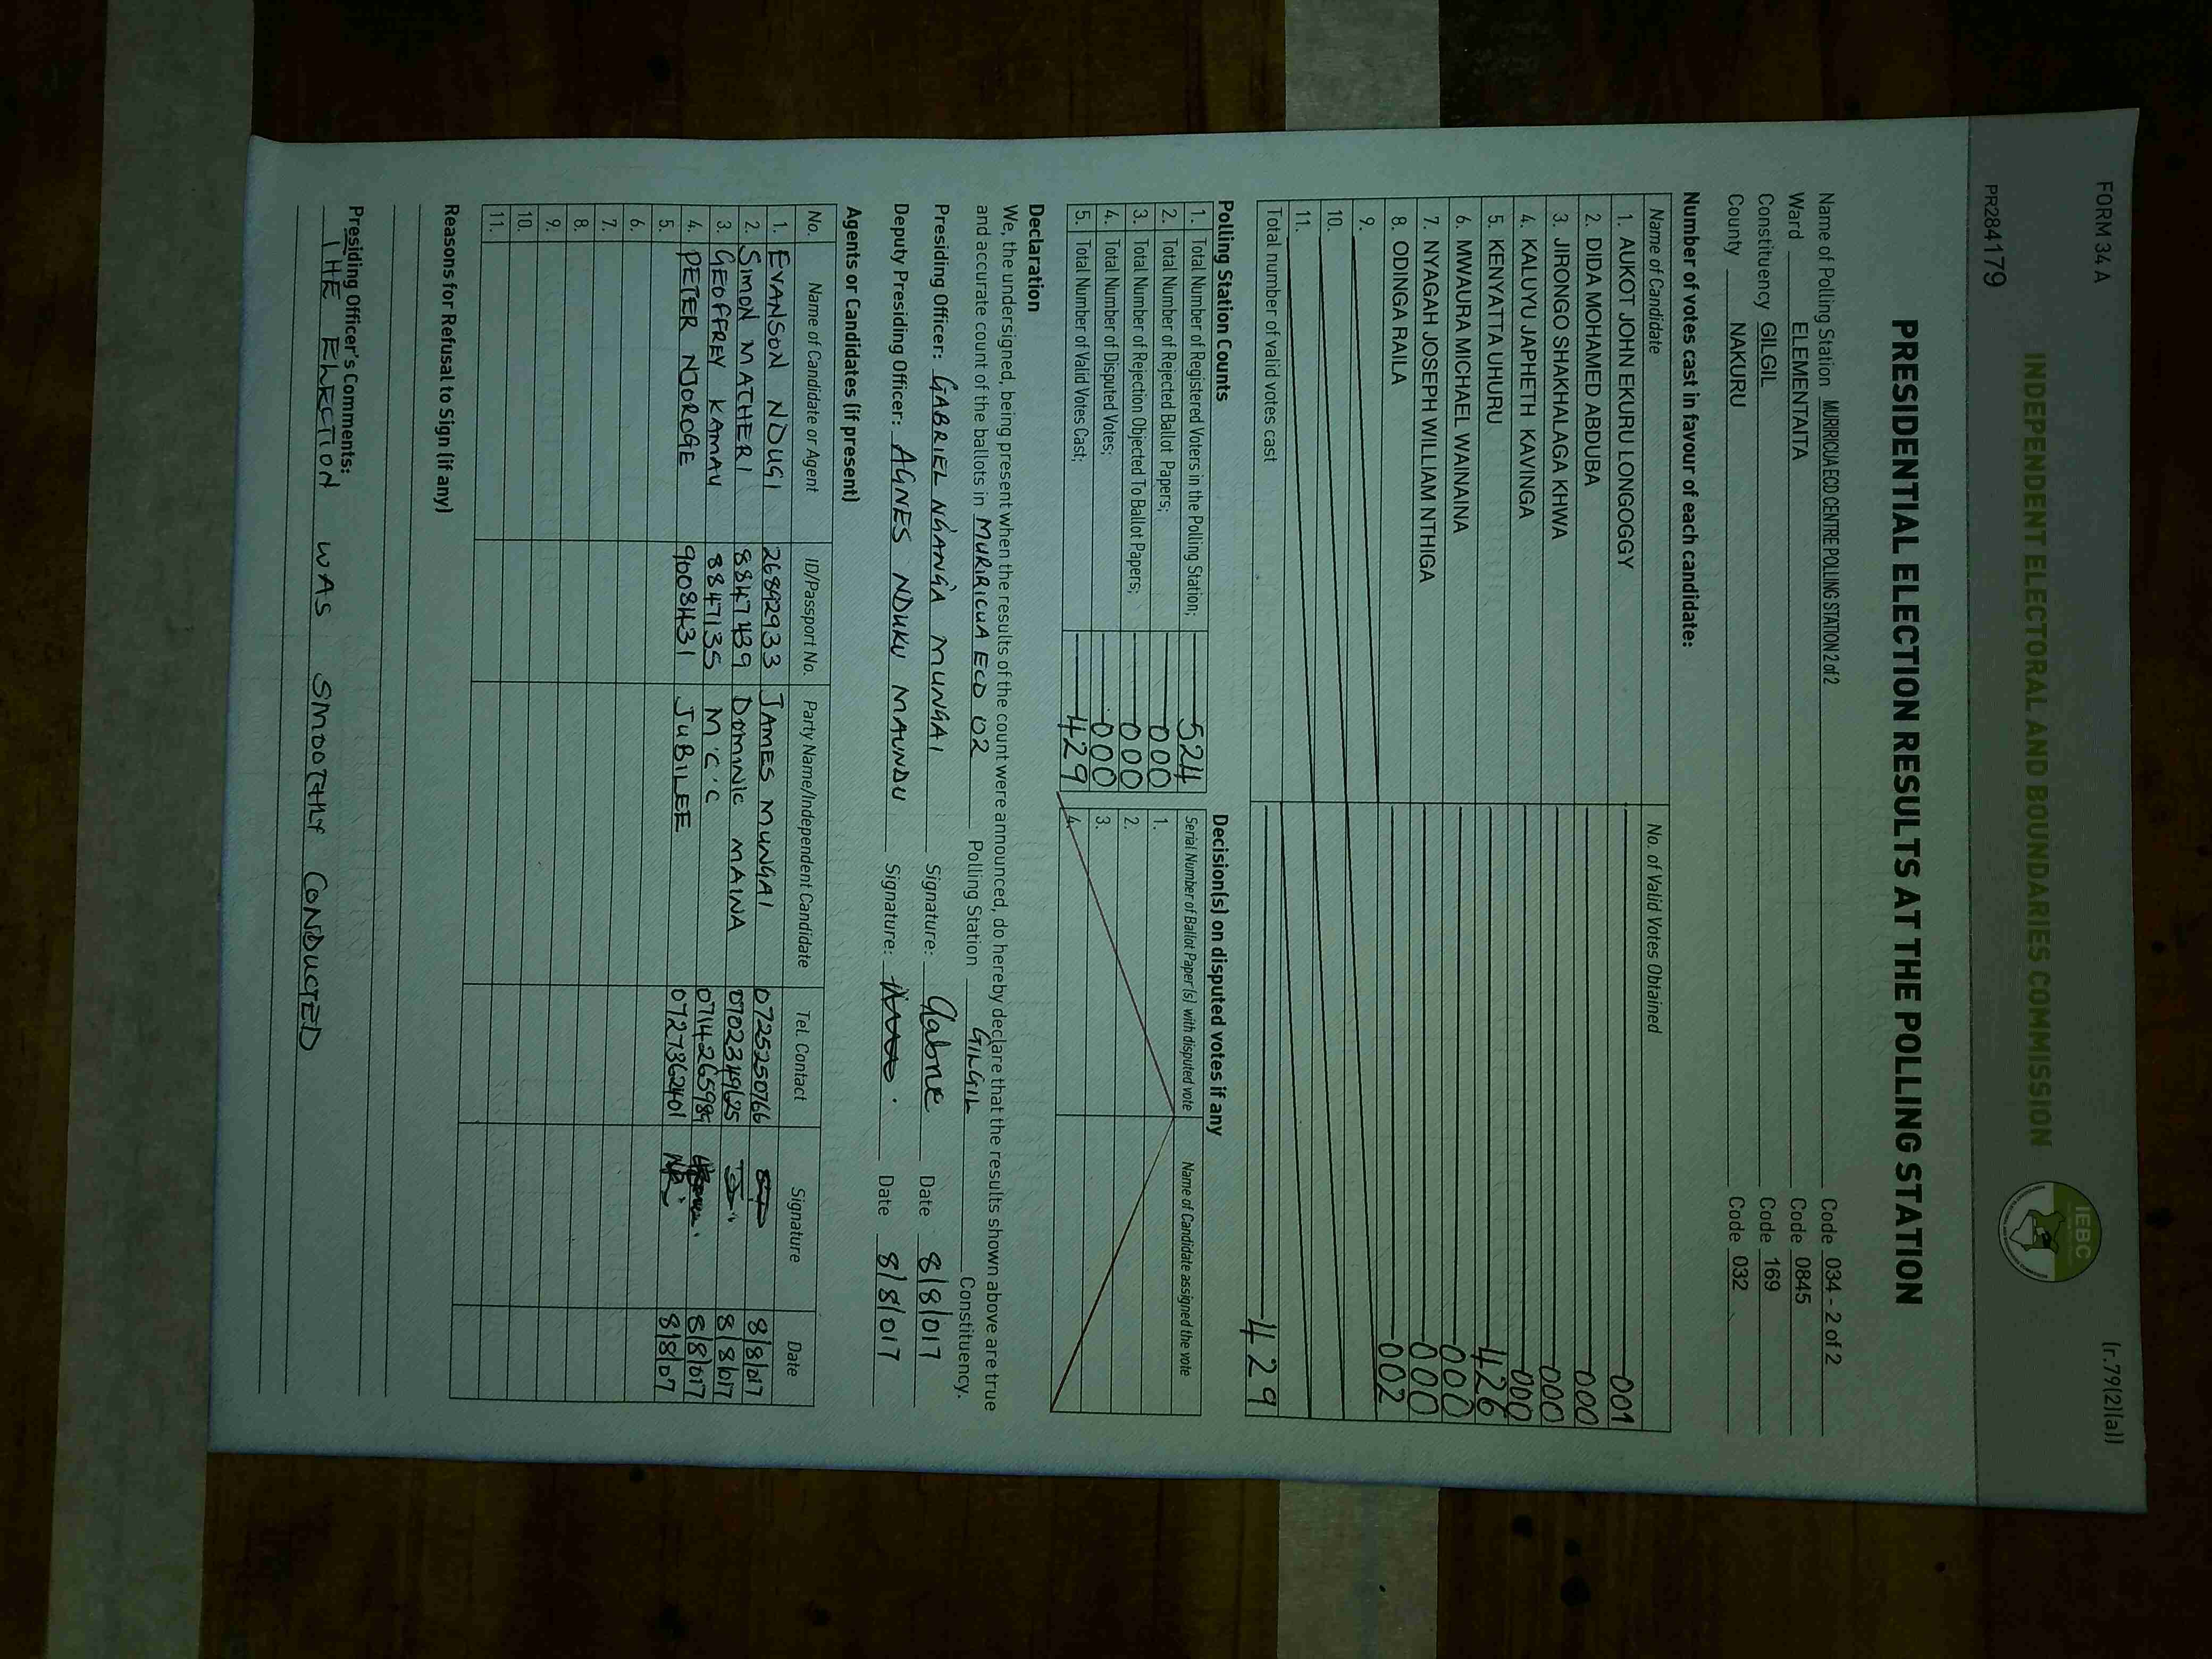 FORM 34 A (r.79(2)(a))
INDEPENDENT ELECTORAL AND BOUNDARIES COMMISSION
IEBC
PR284179
PRESIDENTIAL ELECTION RESULTS AT THE POLLING STATION
Name of Polling Station MURIRICUA ECD CENTRE POLLING STATION 2 of 2 Code 034 - 2 of 2
Ward ELEMENTAITA Code 0845
Constituency GILGIL Code 169
County NAKURU Code 032
Number of votes cast in favour of each candidate:
Name of Candidate No. of Valid Votes Obtained
1. AUKOT JOHN EKURU LONGOGGY 001
2. DIDA MOHAMED ABDUBA 000
3. JIRONGO SHAKHALAGA KHWA 000
4. KALUYU JAPHETH KAVINGA 000
5. KENYATTA UHURU 426
6. MWAURA MICHAEL WAINAINA 000
7. NYAGAH JOSEPH WILLIAM NTHIGA 000
8. ODINGA RAILA 002
9.
10.
11.
Total number of valid votes cast 429
Polling Station Counts Decision(s) on disputed votes if any
1. Total Number of Registered Voters in the Polling Station; 524 Serial Number of Ballot Paper (s) with disputed vote Name of Candidate assigned the vote
2. Total Number of Rejected Ballot Papers; 000 1.
3. Total Number of Rejection Objected To Ballot Papers; 000 2.
4. Total Number of Disputed Votes; 000 3.
5. Total Number of Valid Votes Cast; 429 4.
Declaration
We, the undersigned, being present when the results of the count were announced, do hereby declare that the results shown above are true
and accurate count of the ballots in MURIRICUA ECD 02 Polling Station GILGIL Constituency.
Presiding Officer: GABRIEL NG'ANG'A MUNGAI Signature: Gabrie Date 8/8/017
Deputy Presiding Officer: AGNES NDUKU MAUNDU Signature: Date 8/8/017
Agents or Candidates (if present)
No. Name of Candidate or Agent ID/Passport No. Party Name/Independent Candidate Tel. Contact Signature Date
1. EVANSON NDUGI 26892933 JAMES MUNGAI 0725250766 8/8/017
2. SIMON MATHERI 8847439 DOMNIC MAINA 0702349625 8/8/017
3. GEOFFREY KAMAU 8847135 M.C.C 0714265989 8/8/017
4. PETER NJOROGE 9008431 JUBILEE 0727362401 8/8/07
5.
6.
7.
8.
9.
10.
11.
Reasons for Refusal to Sign (if any)
Presiding Officer's Comments:
THE ELECTION WAS SMOOTHLY CONDUCTED